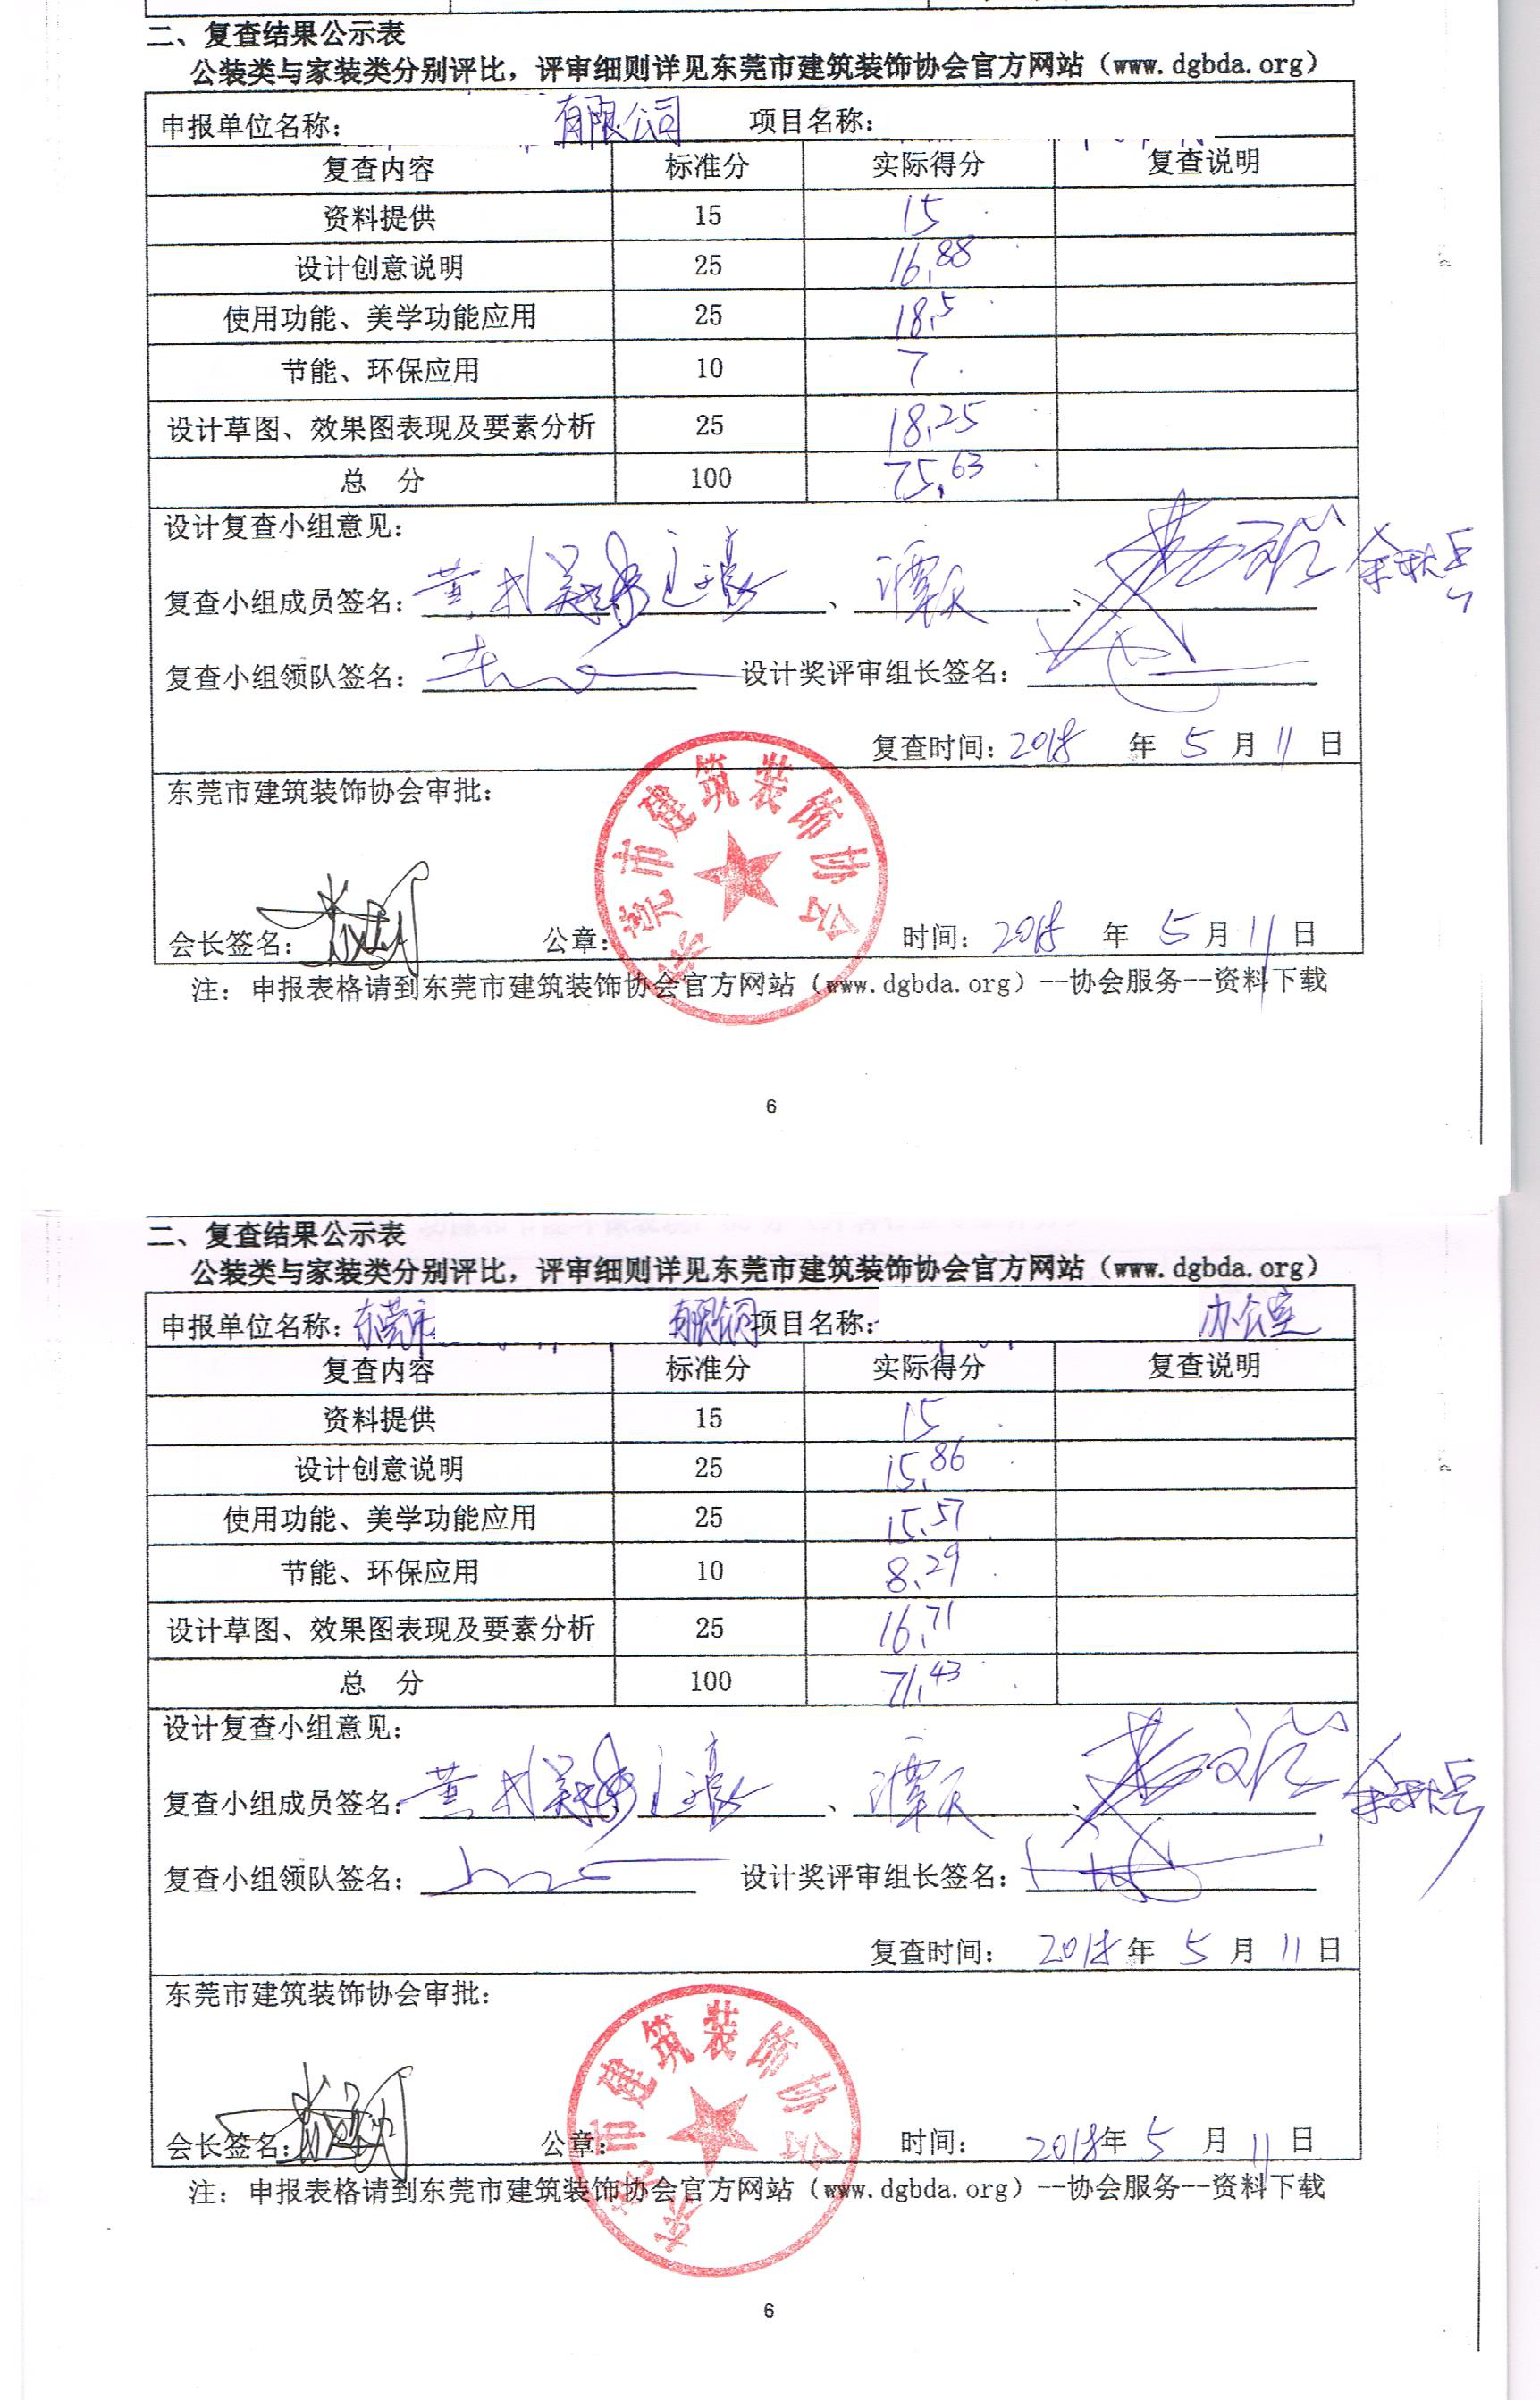 二、复查结果公示表
公装类与家装类分别评比，评审细则详见东莞市建筑装饰协会官方网站（www.dgbda.org）
申报单位名称： 有限公司 项目名称：
复查内容 标准分 实际得分 复查说明
资料提供 15 15
设计创意说明 25 16.88
使用功能、美学功能应用 25 18.5
节能、环保应用 10 7
设计草图、效果图表现及要素分析 25 18.25
总 分 100 75.63
设计复查小组意见：
复查小组成员签名： 、 谭天 、
复查小组领队签名： 设计奖评审组长签名：
复查时间：2018 年 5 月 11 日
东莞市建筑装饰协会审批：
东莞市建筑装饰协会
会长签名： 公章： 时间：2018 年 5 月 11 日
注：申报表格请到东莞市建筑装饰协会官方网站（www.dgbda.org）--协会服务--资料下载
6
二、复查结果公示表
公装类与家装类分别评比，评审细则详见东莞市建筑装饰协会官方网站（www.dgbda.org）
申报单位名称：东莞市 有限公司 项目名称： 办公室
复查内容 标准分 实际得分 复查说明
资料提供 15 15
设计创意说明 25 15.86
使用功能、美学功能应用 25 15.57
节能、环保应用 10 8.29
设计草图、效果图表现及要素分析 25 16.71
总 分 100 71.43
设计复查小组意见：
复查小组成员签名： 、 谭天 、
复查小组领队签名： 设计奖评审组长签名：
复查时间： 2018 年 5 月 11 日
东莞市建筑装饰协会审批：
东莞市建筑装饰协会
会长签名： 公章： 时间： 2018 年 5 月 11 日
注：申报表格请到东莞市建筑装饰协会官方网站（www.dgbda.org）--协会服务--资料下载
6